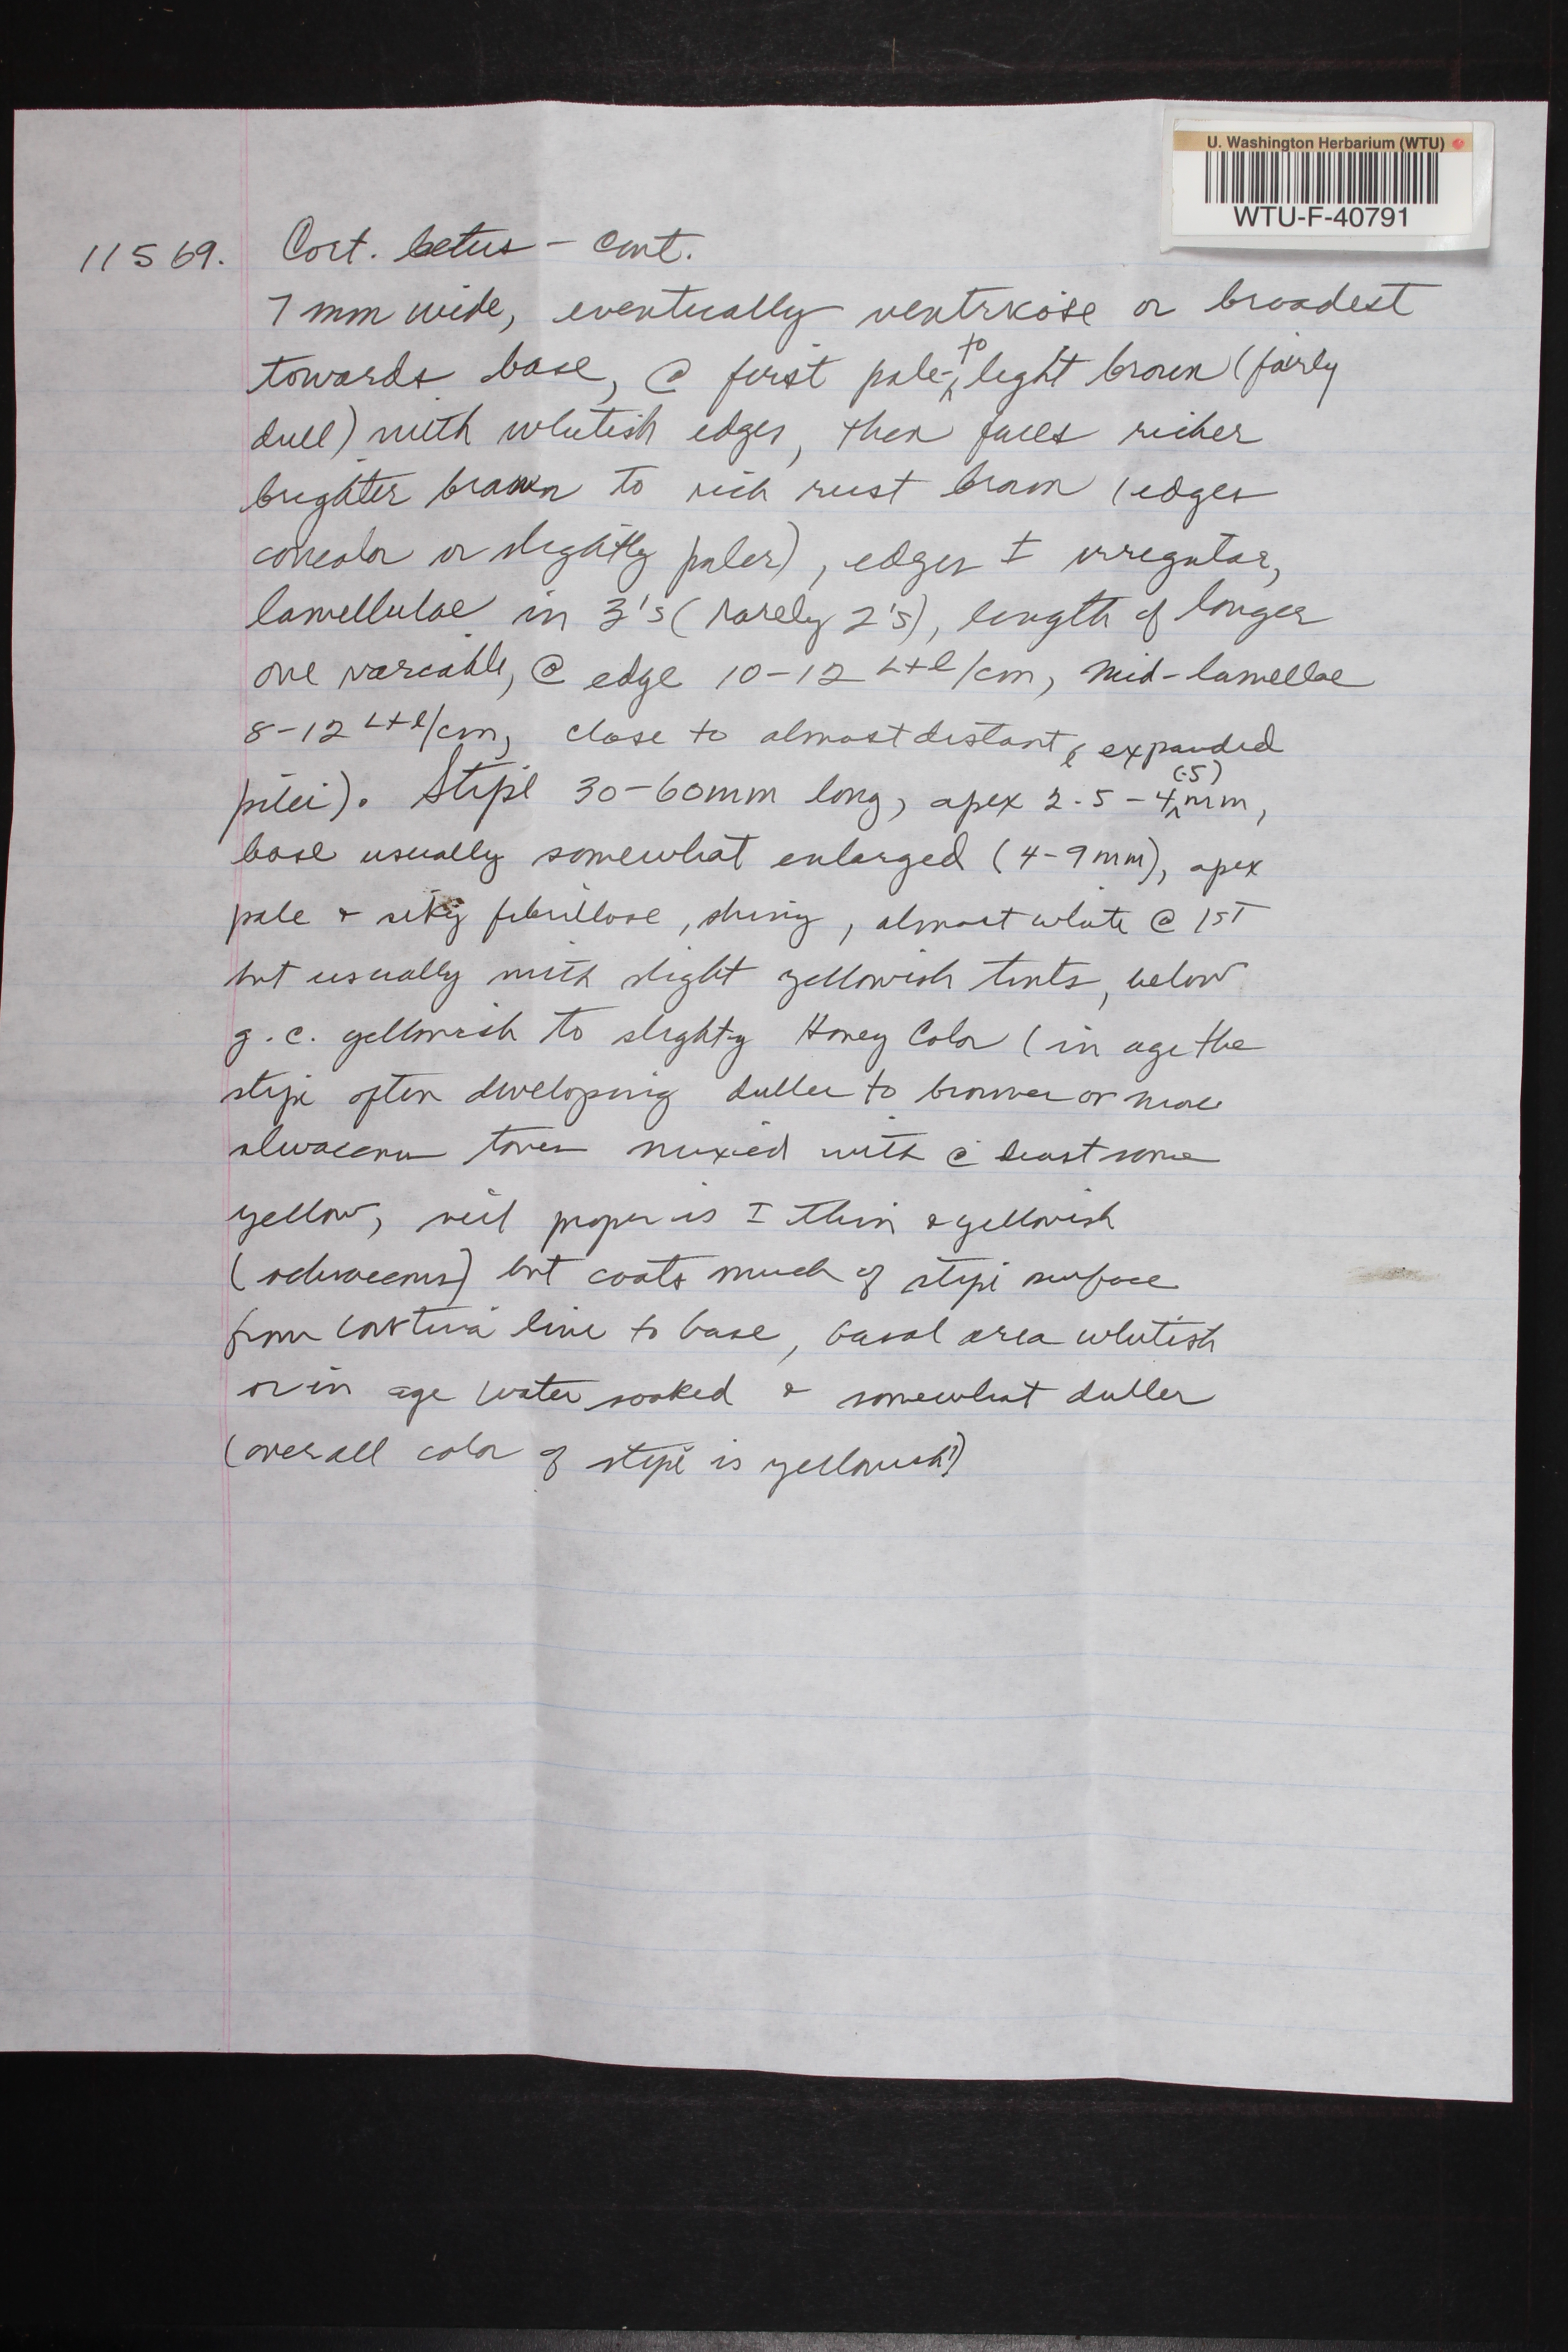 U. Washington Herbarium (WTU)
WTU-F-40791
11569. Cort. betus - cont.
7 mm wide, eventually ventricose or broadest
towards base, @ first pale- to light brown (fairly
dull) with whitish edges, then faces richer
brighter brown to rich rust brown (edges
concolor or slightly paler), edges ± irregular,
lamellulae in 3's (rarely 2's), length of longer
one variable, @ edge 10-12 L+l/cm, mid-lamellae
8-12 L+l/cm, close to almost distant, expanded
pilei). Stipe 30-60mm long, apex 2.5-4(.5)mm,
base usually somewhat enlarged (4-9mm), apex
pale & silky fibrillose, shiny, almost white @ 1ST
but usually with slight yellowish tints, below
g.c. yellowish to slightly Honey Color (in age the
stipe often developing duller to browner or more
olivaceous tones mixed with @ least some
yellow, veil proper is ± thin & yellowish
(ochraceous) but coats much of stipe surface
from cortina line to base, basal area whitish
or in age water soaked & somewhat duller
(overall color of stipe is yellowish!)